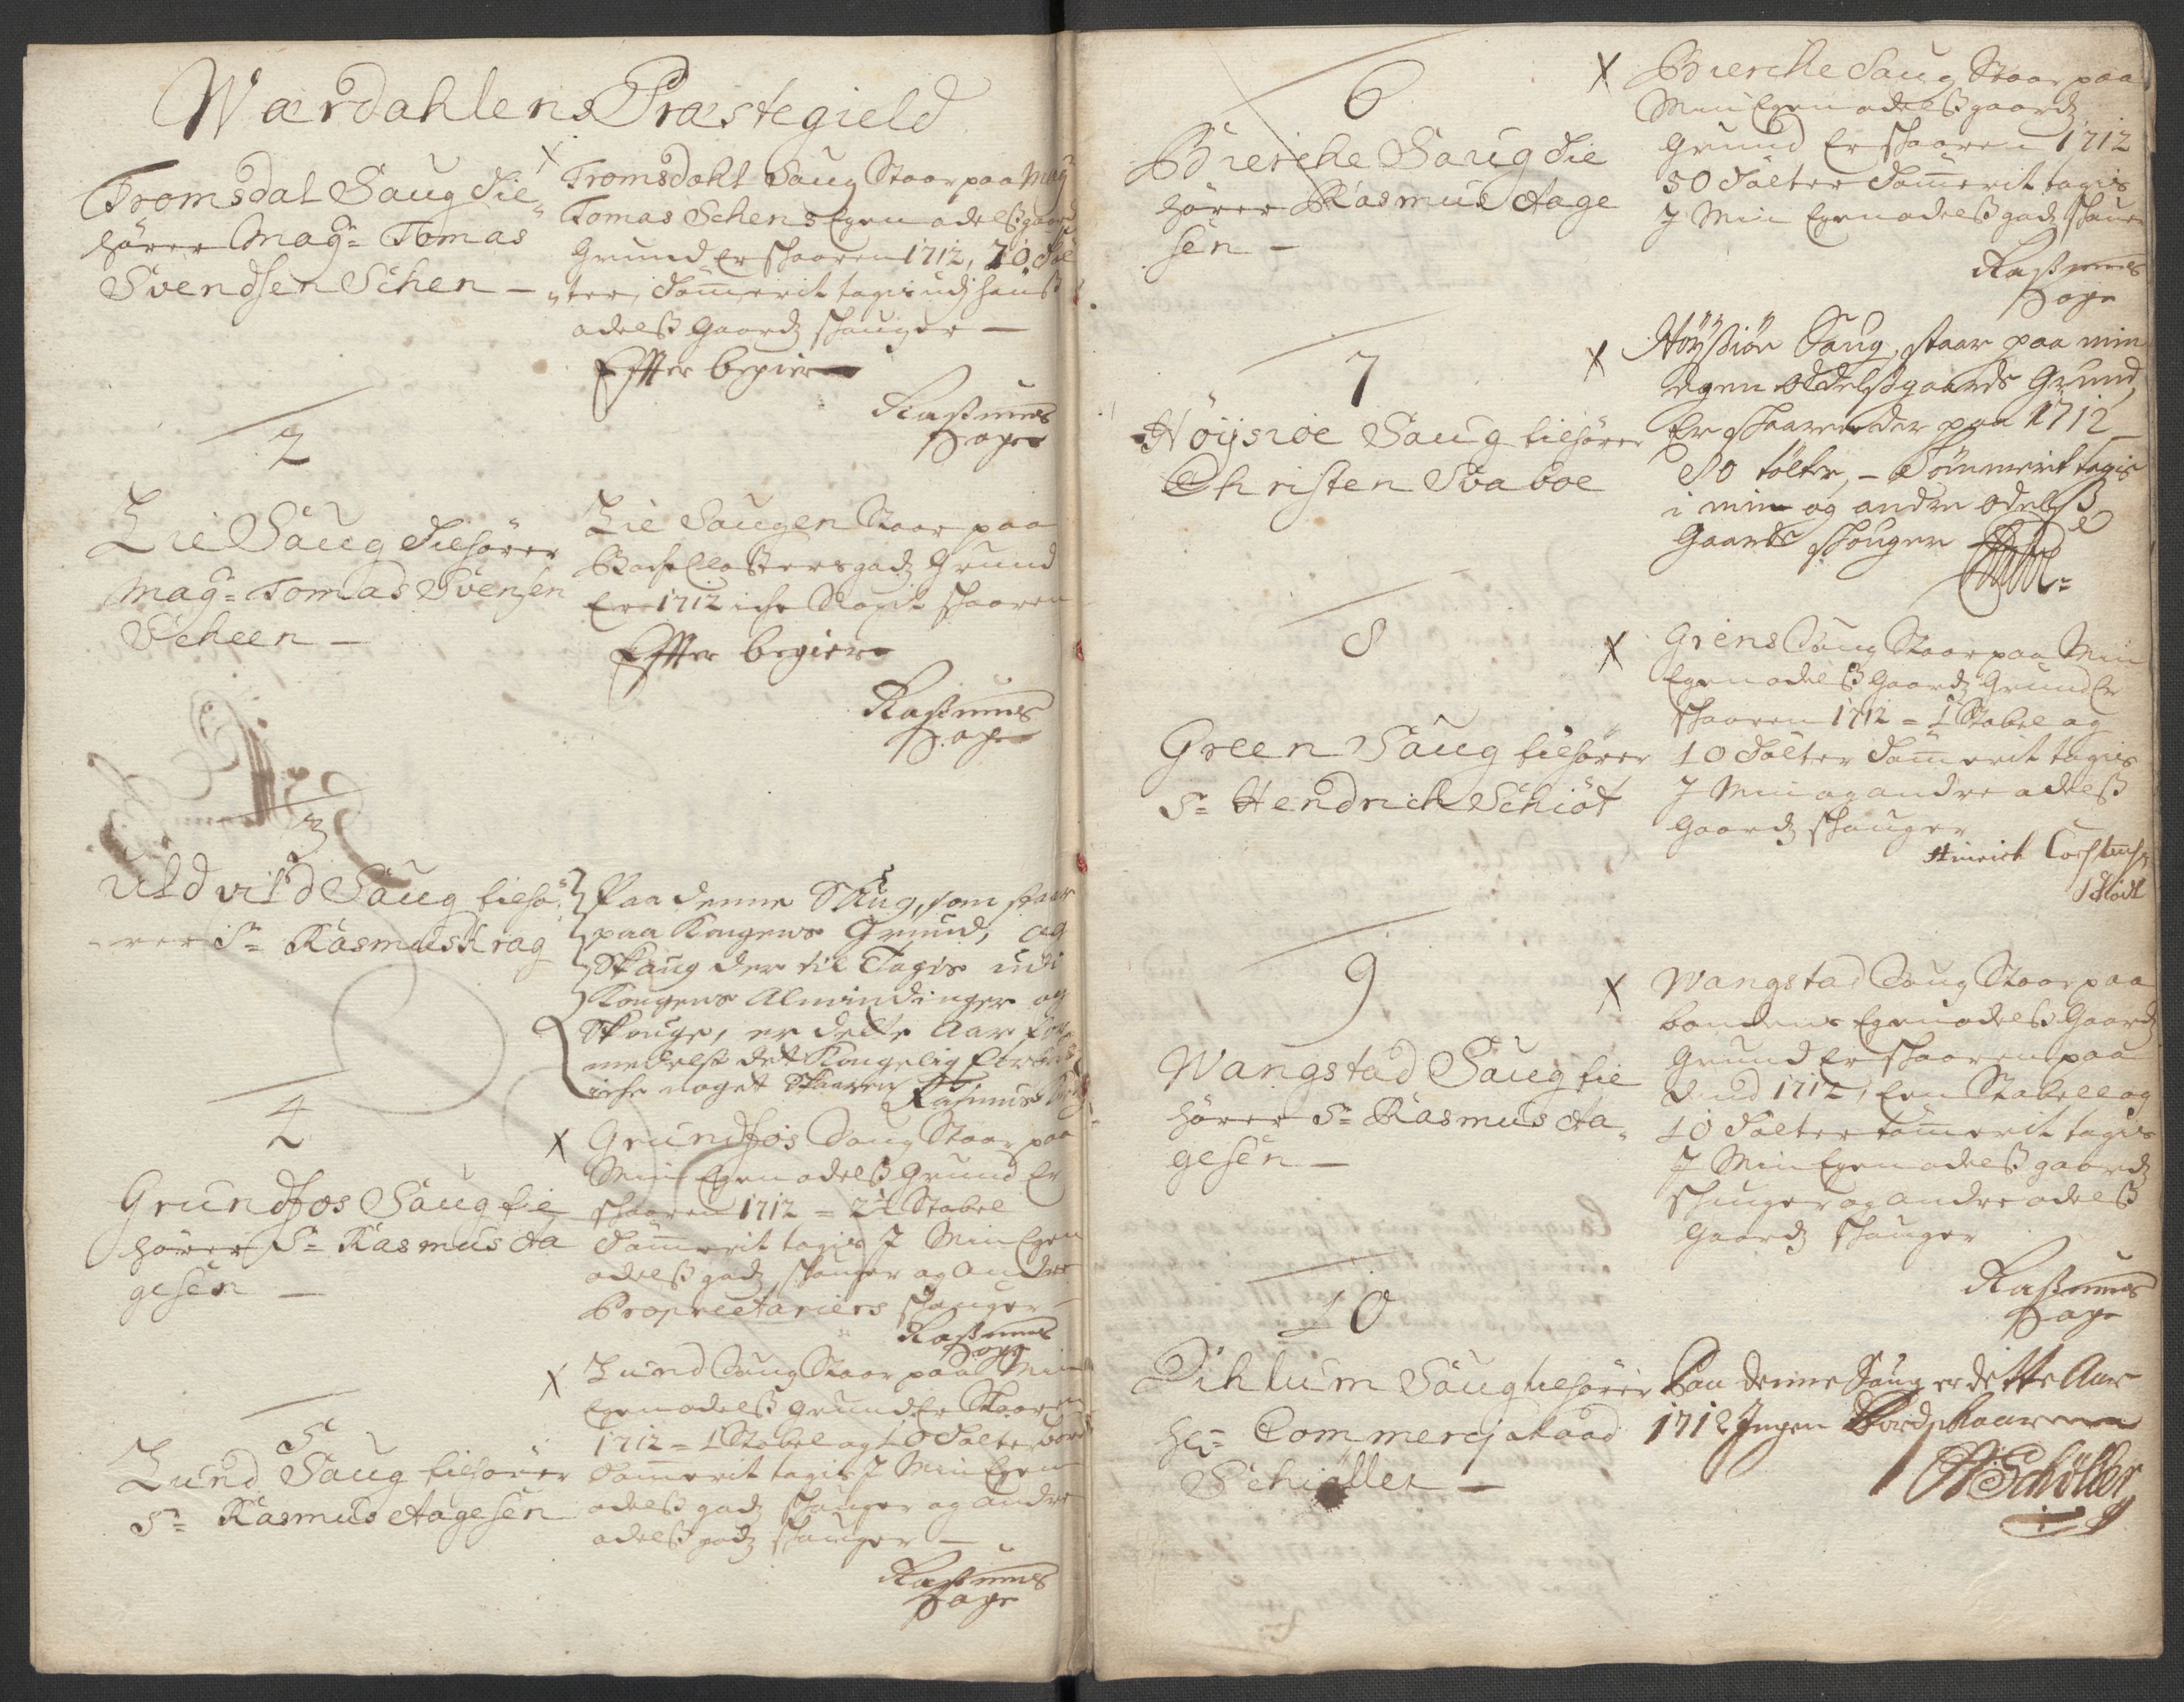 Wærdahlens Præstegield
Tromsdal Saug Til„
hører Magr= Tomas
Svendsen Schen –
X Tromsdahl Saug Staar paa Mag
Tomas Schens Egen odelß gaard
Grund Er skaaren 1712, 70 Tøl
„ter, Tømerit tagis udj hanß
odelß gaardz skauger –
Effter begier
Raßmus
Hage
2
Lie Saug Tilhører
Magr= Tomas Svensen
Scheen –
Lie Saugen Staar paa
Bache Closters gadz Grund
Er 1712 iche Noget skaaren
Effter begier
Raßmus
Hage
3
Uldvild Saug tilhø„
„rer Sr= Rasmus Krag
Paa denne Saug, som staar
paa Kongens Grund, og
Skaug der til Tagis udi
Kongens Almindinger og
Skouge, er dette Aar for
medelst det Kongelig forbud
iche noget Skaaren Rasmus Krag
4
Grundfos Saug til
hører Sr= Rasmus Aa
gesen –
X Grundfos Saug Staar paa
Min Egen odelß Grund Er
skaaren 1712 = 2½ Stabel
Tømerit tagis J Min Egen
odelß gadz skouger og Andre
Proprietariers skauger –
Raßmus
Hage
5
Lund Saug tilhører
Sr= Rasmus Aagesen
X Lund Saug Staar paa Min
Egen odelß grund Er Skaaren
1712 = 1 Stabel og 10 Tølter bord
Tømerit tagis J Min Egen
odelß gadz skauger og Andre
odelß gadz skauger –
Raßmus
Hage
6
Bierche Saug Til
hører Rasmus Aage
sen –
X Bierche Saug Staar paa
Min Egen odelß gaardz
Grund Er skaaren 1712
50 Tølter Tømerit tagis
J Min Egen odelß gadz skauer
Raßmus
Hage
7
Høysiøe Saug tilhører
Christen Svaboe
X Høysiøe Saug, staar paa min
egen oddelßgaards Grund,
Er skaaren der paa 1712
80 tølter, – Tømmerit tagis
i min og andre odelß
Gaards skouger
8
Green Saug tilhører
Sr= Hendrich Schiøt
X Grens Saug Staar paa Min
Egen odelß gaardz Grund Er
skaaren 1712 = 1 Stabel og
10 Tølter Tømerit tagis
J Min og andre odelß
gaardz skauger
Hinrich
Schiødt
9
Wangstad Saug til
hører Sr= Rasmus Aa„
gesen –
X Wangstad Saug Staar paa
bondens Egen odelß Gaardz
Grund Er skaaren paa
1712, Een Stabell og
10 Tølter tømerit tagis
J Min Egen odelß gaardz
skauger og Andre odelß
Gaardz skauger
Raßmus
Hage
10
Dihlum Saug tilhører
Hr= Commercj Raad
Schiøller –
Paa denne Saug er dette Aar
1712 Ingen Bord skaaren
Schøller